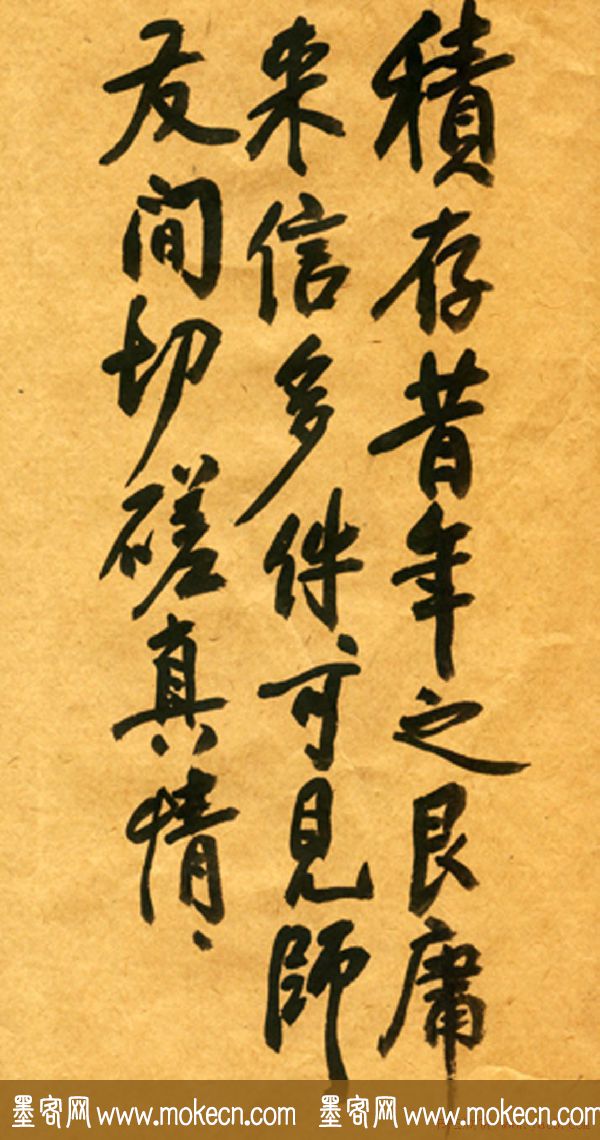 積存昔年之艮庸
来信多件可見師
友间切磋真情、
墨客网 www.mokecn.com 墨客网 www.mokecn.com